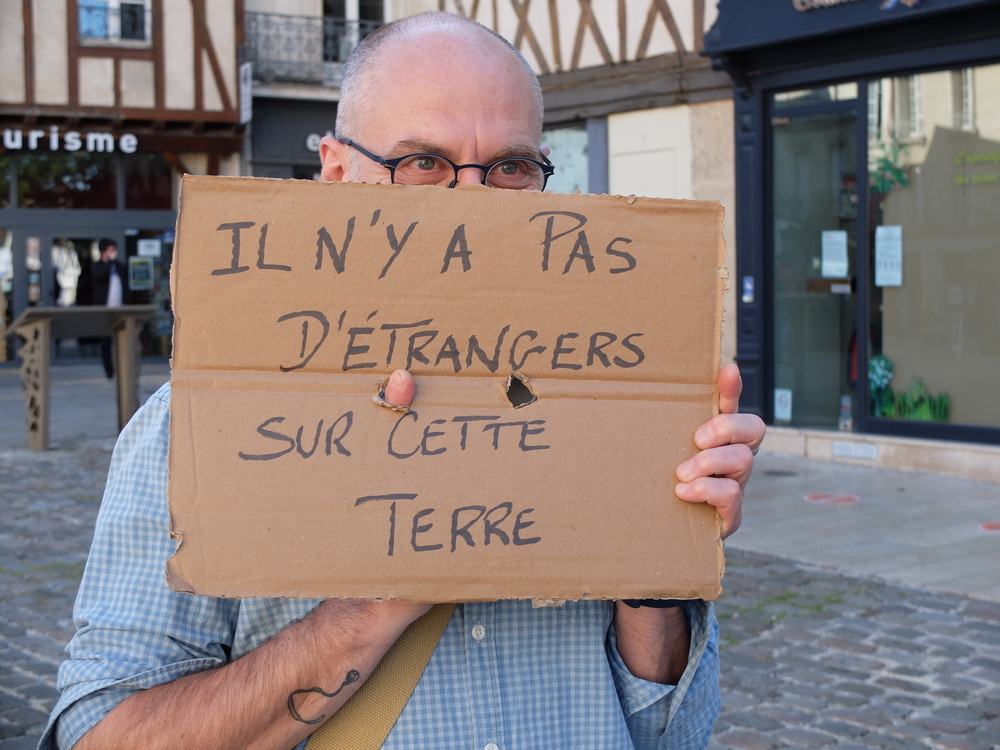 urisme
IL N'Y A PAS
D'ÉTRANGERS
SUR CETTE
TERRE